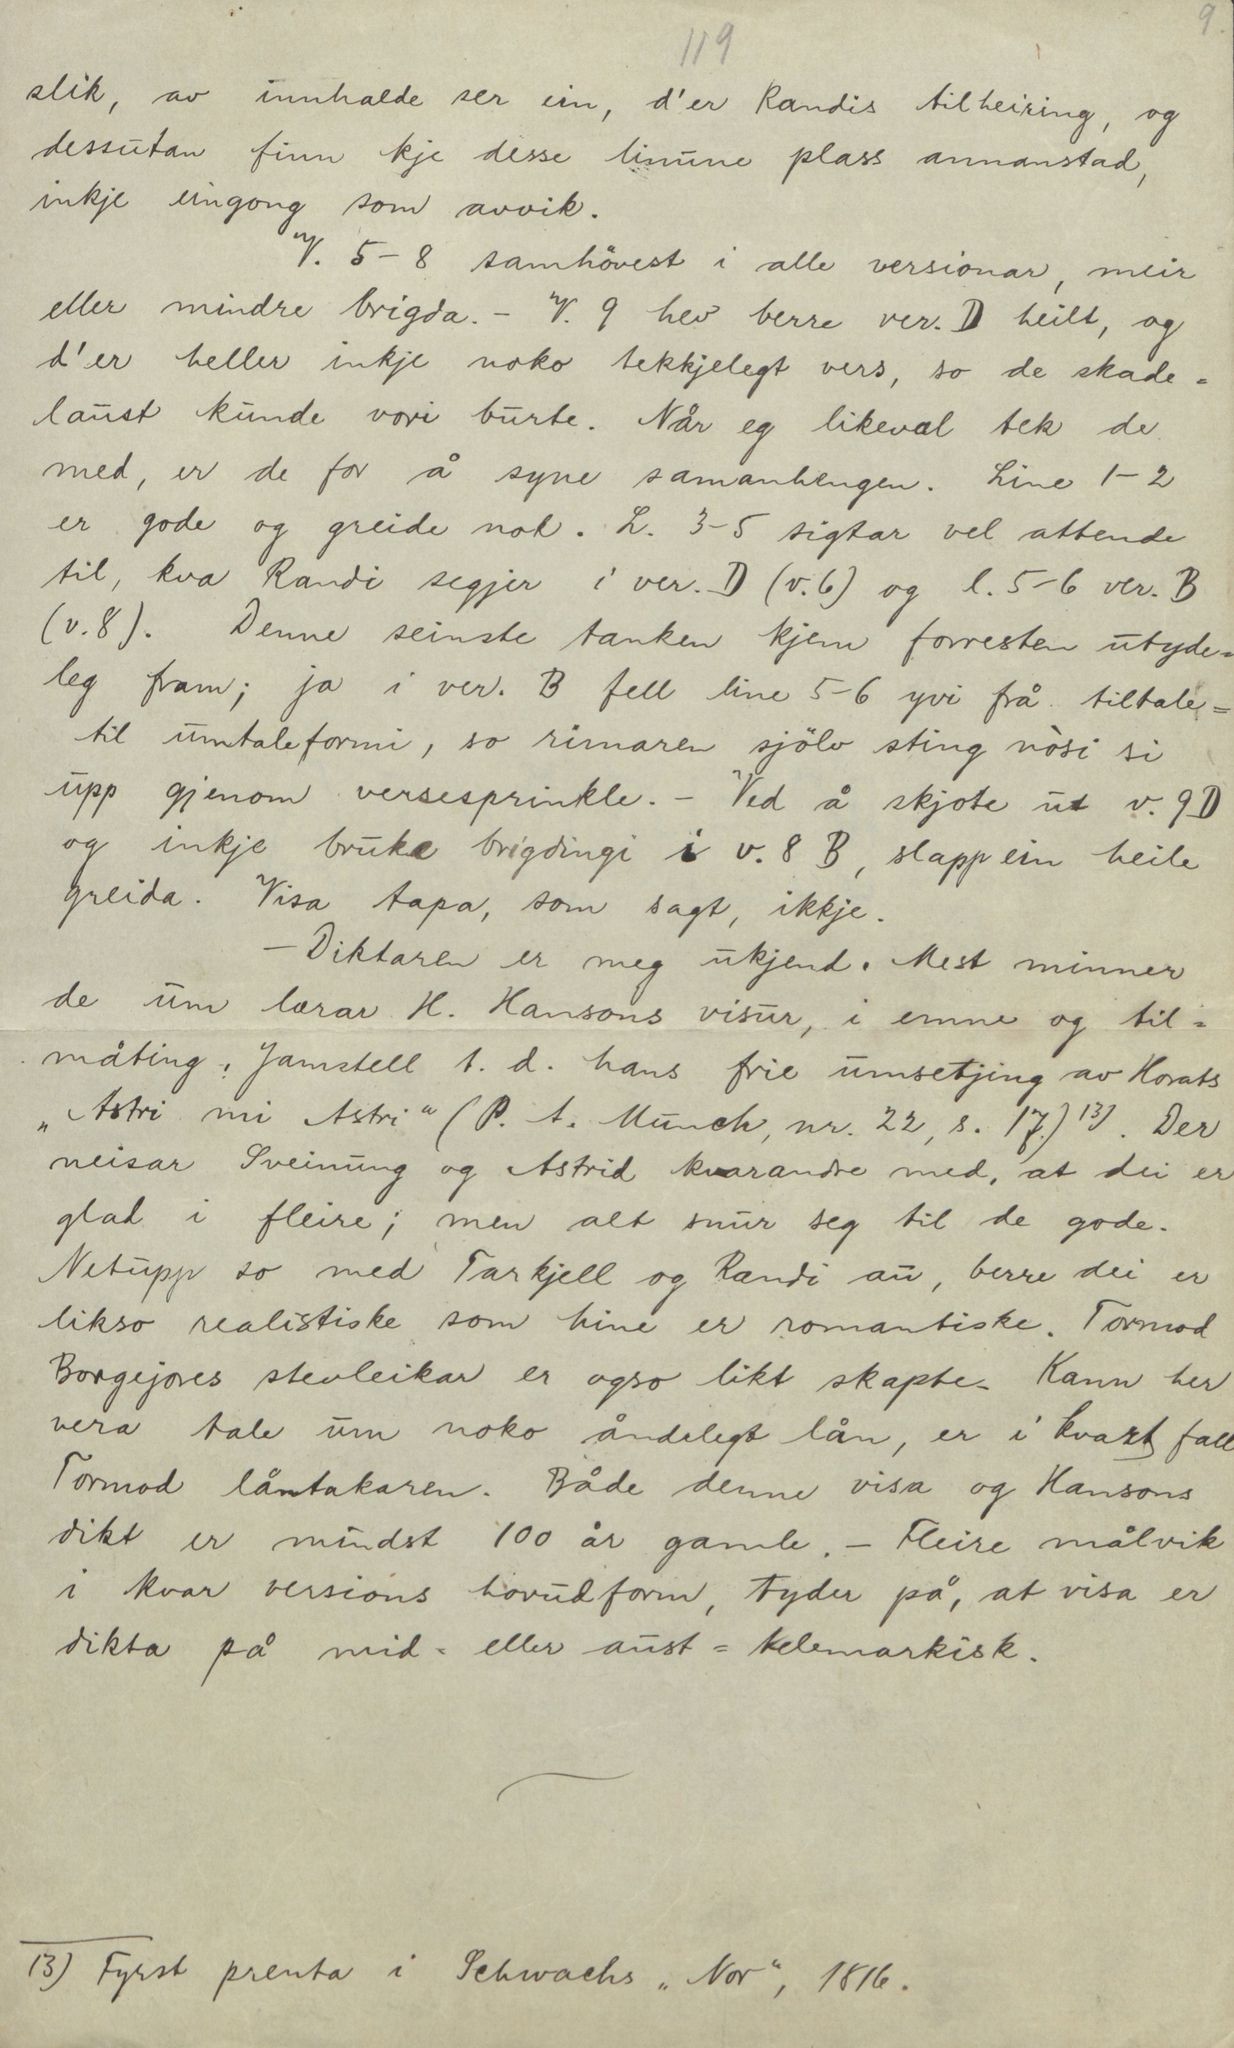 119
9.
slik, av innhalde ser ein, d'er Randis tilheiring, og
dessutan finn kje desse linune plass annanstad,
inkje eingong som avvik.
V. 5-8 samhövest i alle versionar, meir
eller mindre brigda. - V. 9 hev berre ver. D heilt, og
d'er heller inkje noko tekkjelegt vers, so de skade=
laust kunde vori burte. Når eg likeval tek de
med, er de for å syne samanhengen. Line 1-2
er gode og greide nok. L. 3-5 sigtar vel attende
til, kva Randi segjer i ver. D (v. 6) og l. 5-6 ver. B
(v. 8). Denne seinste tanken kjem forresten utyde=
leg fram; ja i ver. B fell line 5-6 yvi frå tiltale=
til umtaleformi, so rimaren sjölv sting nòsi si
upp gjenom versesprinkle. - Ved å skjote ut v. 9 D
og inkje bruke brigdingi i v. 8 B, slapp ein heile
greida. Visa tapa, som sagt, ikkje.
- Diktaren er meg ukjend. Mest minner
de um lærar H. Hansons visur, i emne og til=
måting. Jamstell t. d. hans frie umsetjing av Horats
„Astri mi Astri“ (P. A. Munch, nr. 22, s. 17f.) 13). Der
neisar Sveinung og Astrid kvarandre med, at dei er
glad i fleire; men alt snur seg til de gode.
Netupp so med Tarkjell og Randi au, berre dei er
likso realistiske som hine er romantiske. Tormod
Borgejores stevleikar er ogso likt skapte. Kann her
vera tale um noko åndelegt lån, er i kvart fall
Tormod låntakaren. Både denne visa og Hansons
dikt er mindst 100 år gamle. - Fleire målvik
i kvar versions hovudform, tyder på, at visa er
dikta på mid- eller aust = telemarkisk.
13) Fyrst prenta i Schwachs „Nor“, 1816.